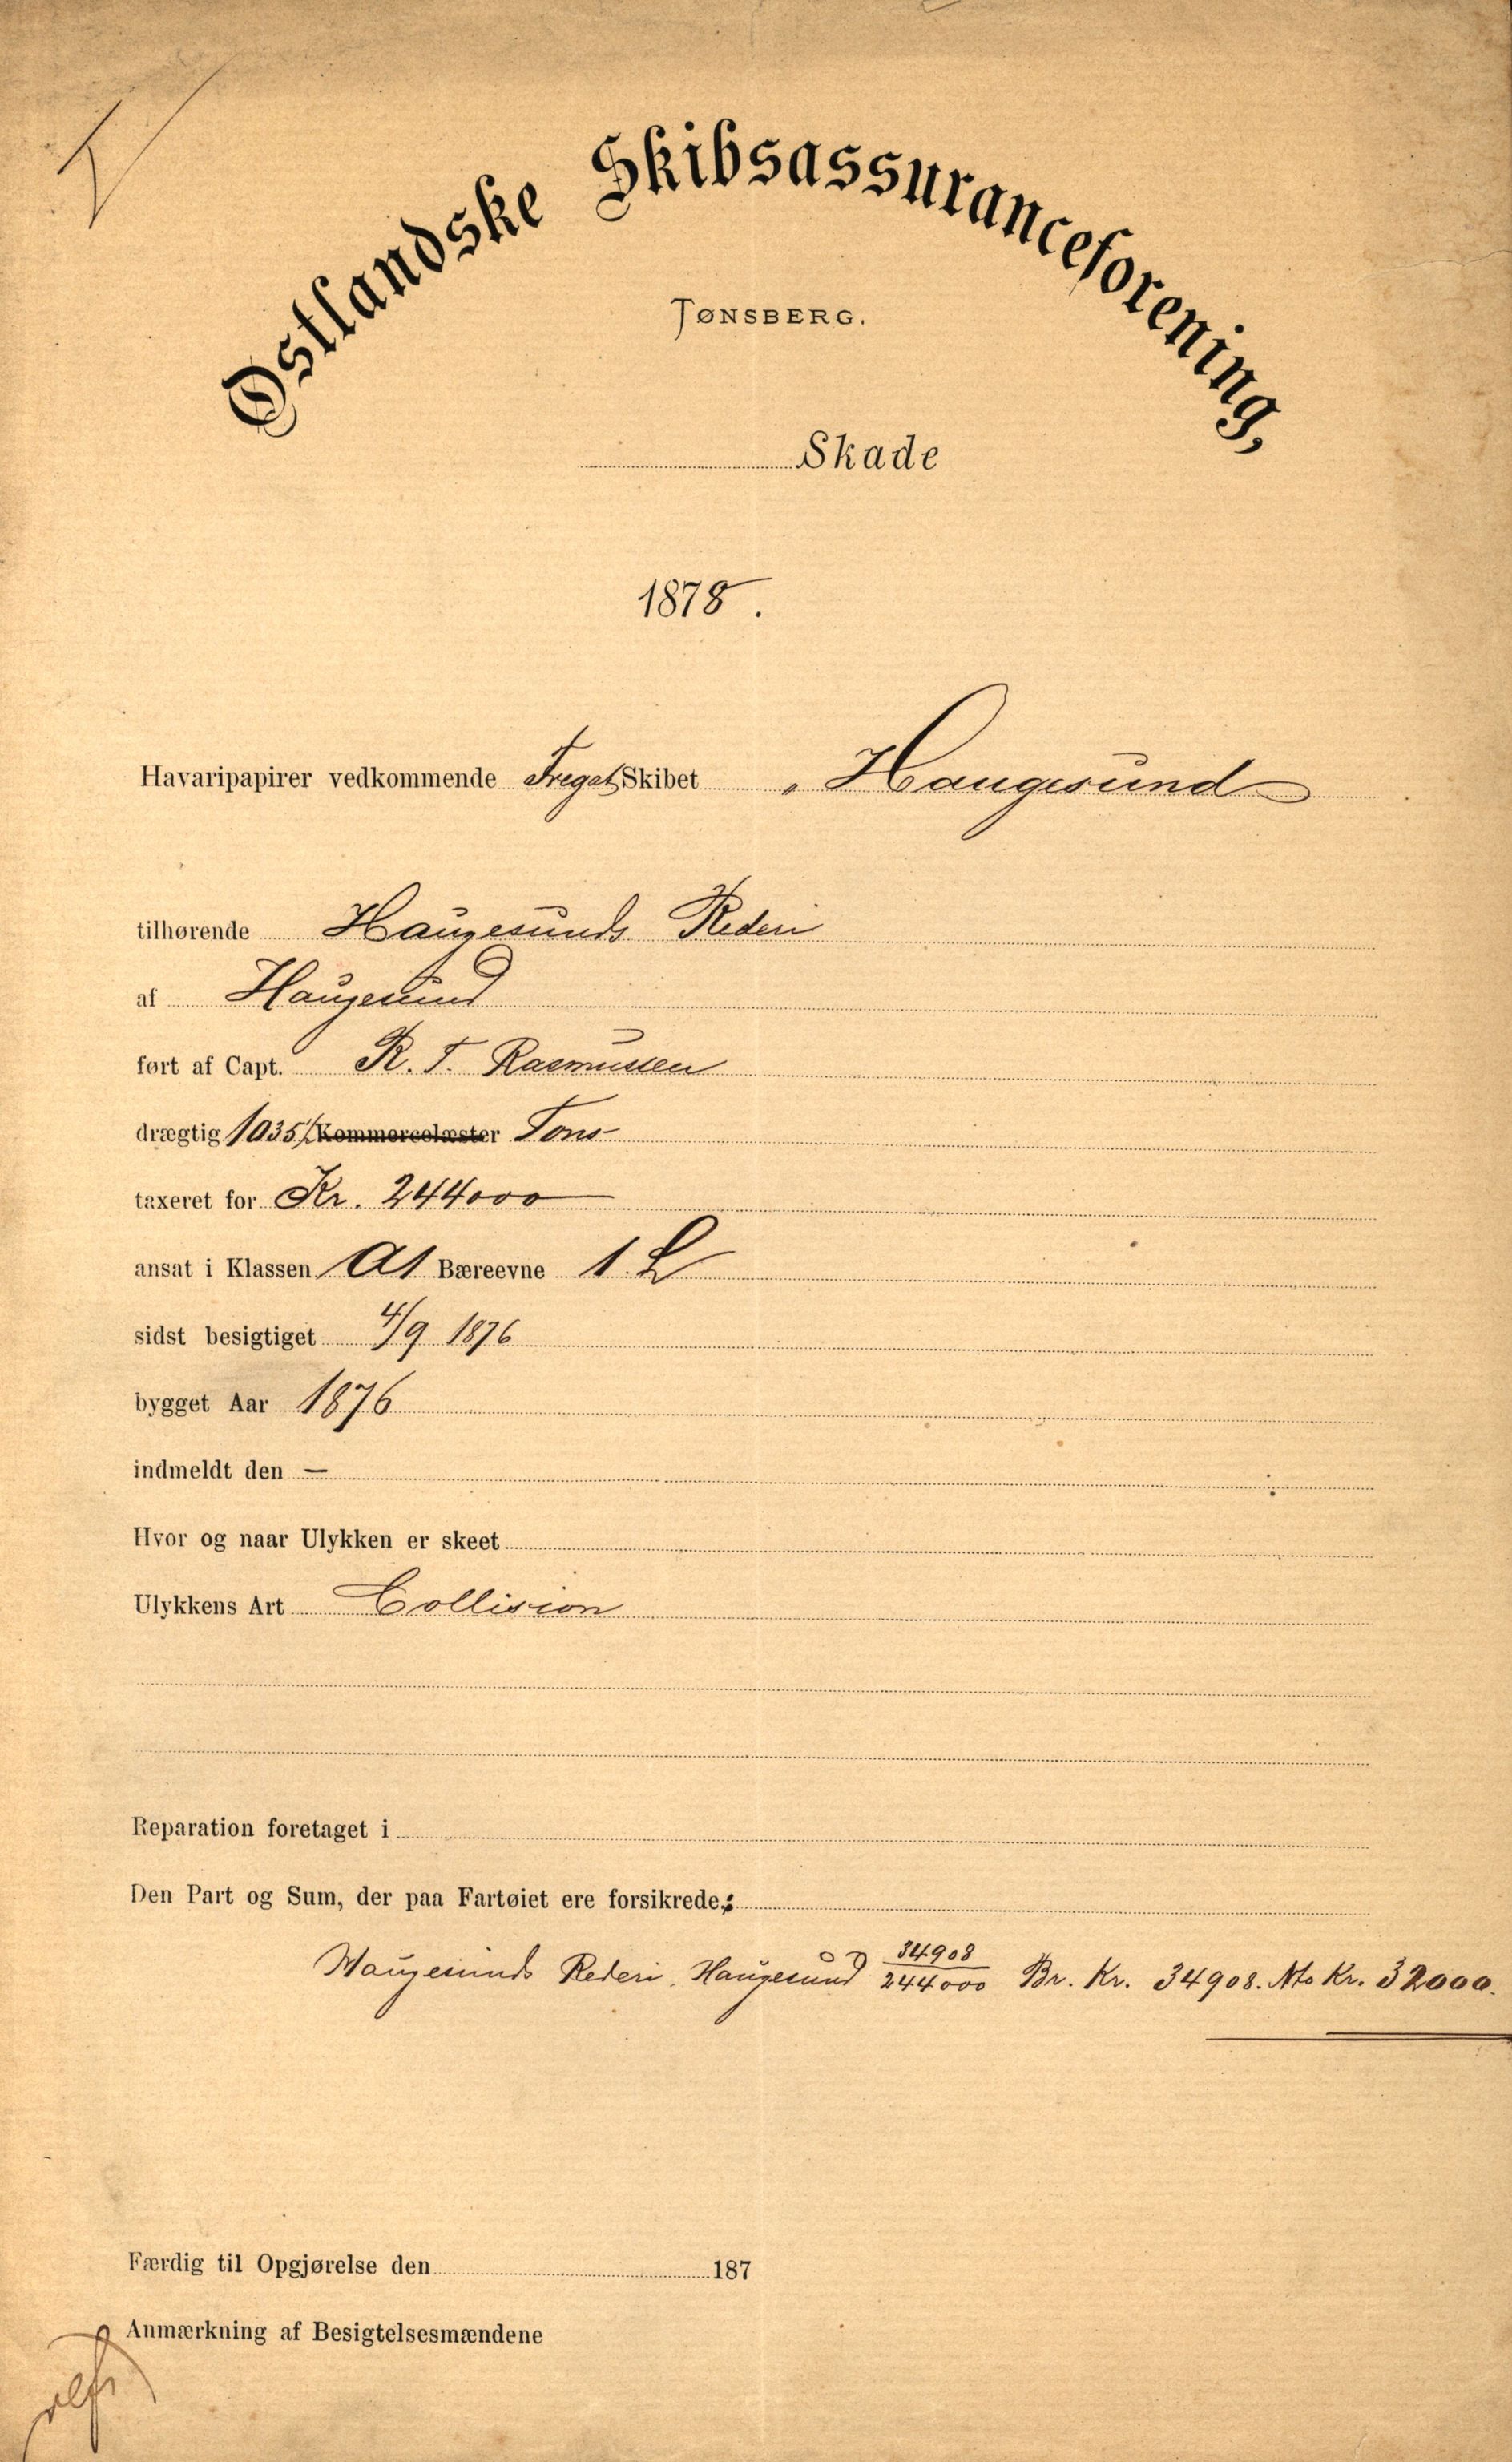 Østlandske Skibsassuranceforening,
TØNSBERG.
Skade
1878.
Havaripapirer vedkommende Fregat Skibet „Haugesund
tilhørende Haugesunds Rederi
af Haugesund
ført af Capt. R. T. Rasmussen
drægtig 1035 Kommercelæster Tons
taxeret for Kr. 244000
ansat i Klassen A1 Bæreevne 1. L
sidst besigtiget 4/9 1876
bygget Aar 1876
indmeldt den —
Hvor og naar Ulykken er skeet
Ulykkens Art Collision
Reparation foretaget i
Den Part og Sum, der paa Fartøiet ere forsikrede:
Haugesunds Rederi. Haugesund 34908/244000 Br. Kr. 34908. Nto Kr. 32000.
Færdig til Opgjørelse den 187
Anmærkning af Besigtelsesmændene